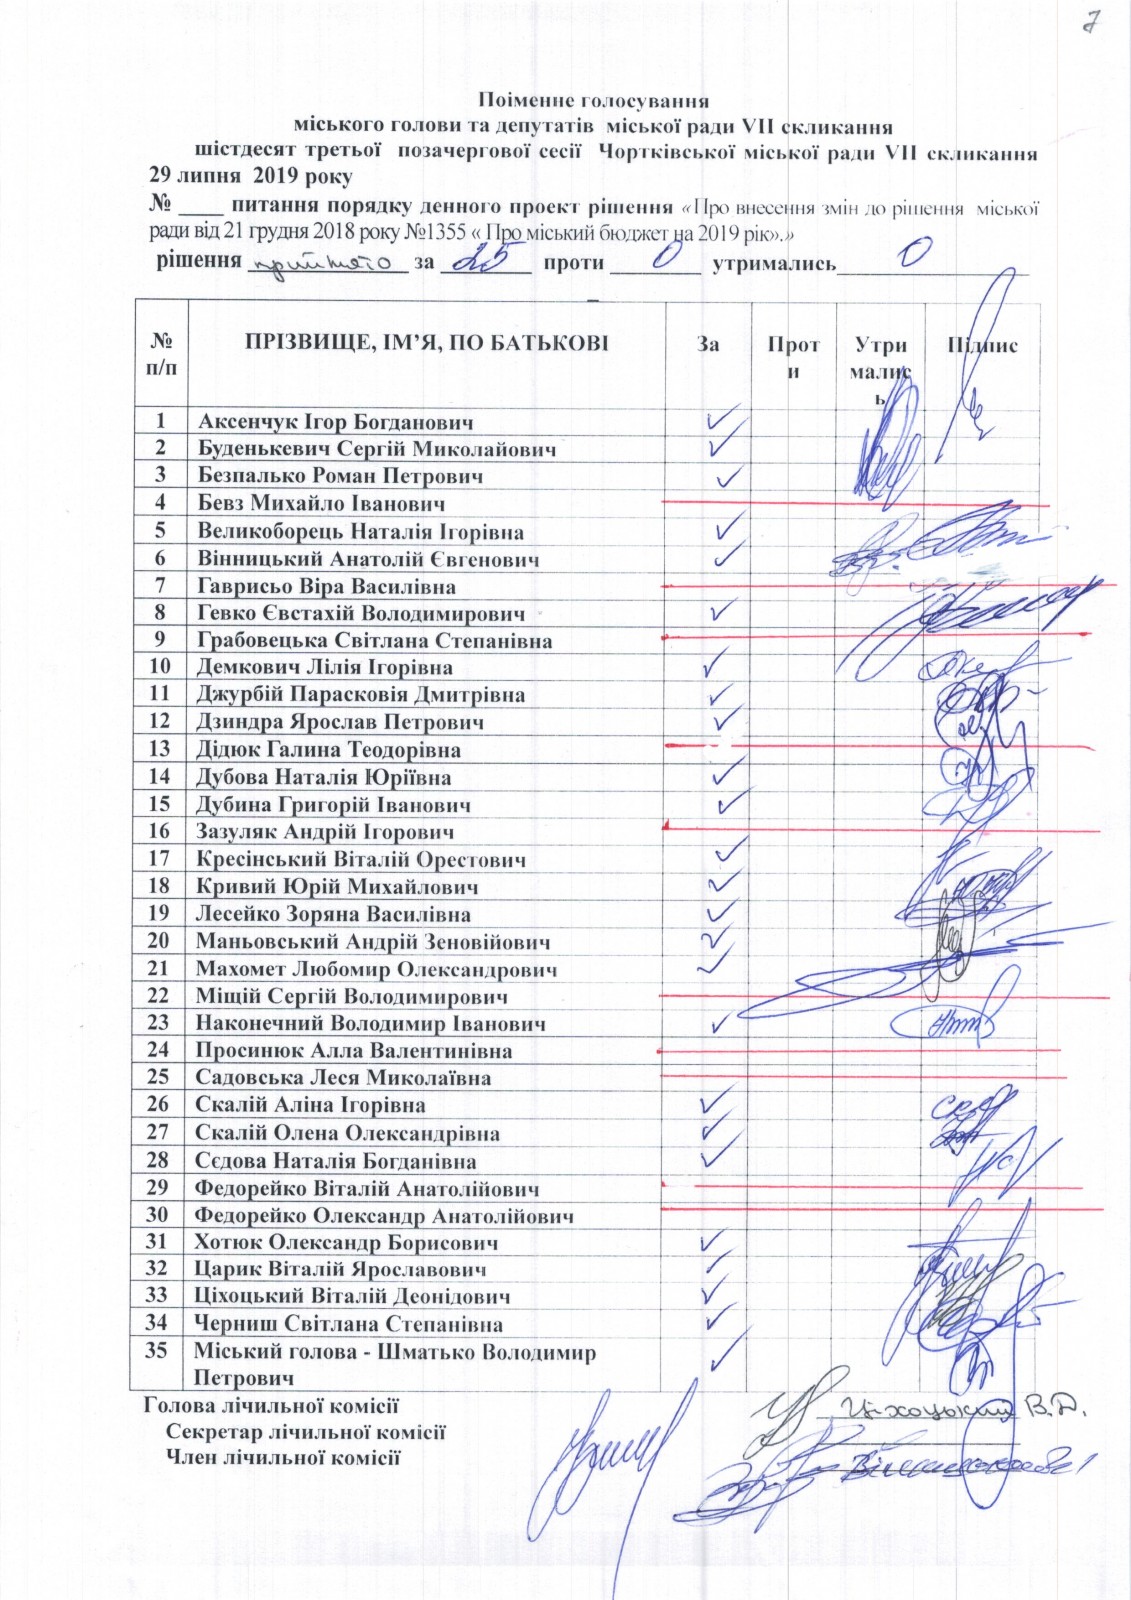 7
Поіменне голосування
міського голови та депутатів міської ради VII скликання
шістдесят третьої позачергової сесії Чортківської міської ради VII скликання
29 липня 2019 року
№ ____ питання порядку денного проект рішення «Про внесення змін до рішення міської
ради від 21 грудня 2018 року №1355 « Про міський бюджет на 2019 рік».»
рішення прийнято за 25 проти 0 утримались 0
№ п/п ПРІЗВИЩЕ, ІМ’Я, ПО БАТЬКОВІ За Прот и Утри малис ь Підпис
1 Аксенчук Ігор Богданович ✓
2 Буденькевич Сергій Миколайович ✓
3 Безпалько Роман Петрович ✓
4 Бевз Михайло Іванович
5 Великоборець Наталія Ігорівна ✓
6 Вінницький Анатолій Євгенович ✓
7 Гаврисьо Віра Василівна
8 Гевко Євстахій Володимирович ✓
9 Грабовецька Світлана Степанівна
10 Демкович Лілія Ігорівна ✓
11 Джурбій Парасковія Дмитрівна ✓
12 Дзиндра Ярослав Петрович ✓
13 Дідюк Галина Теодорівна
14 Дубова Наталія Юріївна ✓
15 Дубина Григорій Іванович ✓
16 Зазуляк Андрій Ігорович
17 Кресінський Віталій Орестович ✓
18 Кривий Юрій Михайлович ✓
19 Лесейко Зоряна Василівна ✓
20 Маньовський Андрій Зеновійович ✓
21 Махомет Любомир Олександрович ✓
22 Міщій Сергій Володимирович
23 Наконечний Володимир Іванович ✓
24 Просинюк Алла Валентинівна
25 Садовська Леся Миколаївна
26 Скалій Аліна Ігорівна ✓
27 Скалій Олена Олександрівна ✓
28 Сєдова Наталія Богданівна ✓
29 Федорейко Віталій Анатолійович
30 Федорейко Олександр Анатолійович
31 Хотюк Олександр Борисович ✓
32 Царик Віталій Ярославович ✓
33 Ціхоцький Віталій Деонідович ✓
34 Черниш Світлана Степанівна ✓
35 Міський голова - Шматько Володимир ✓
Петрович
Голова лічильної комісії Ціхоцький В.Д.
Секретар лічильної комісії
Член лічильної комісії